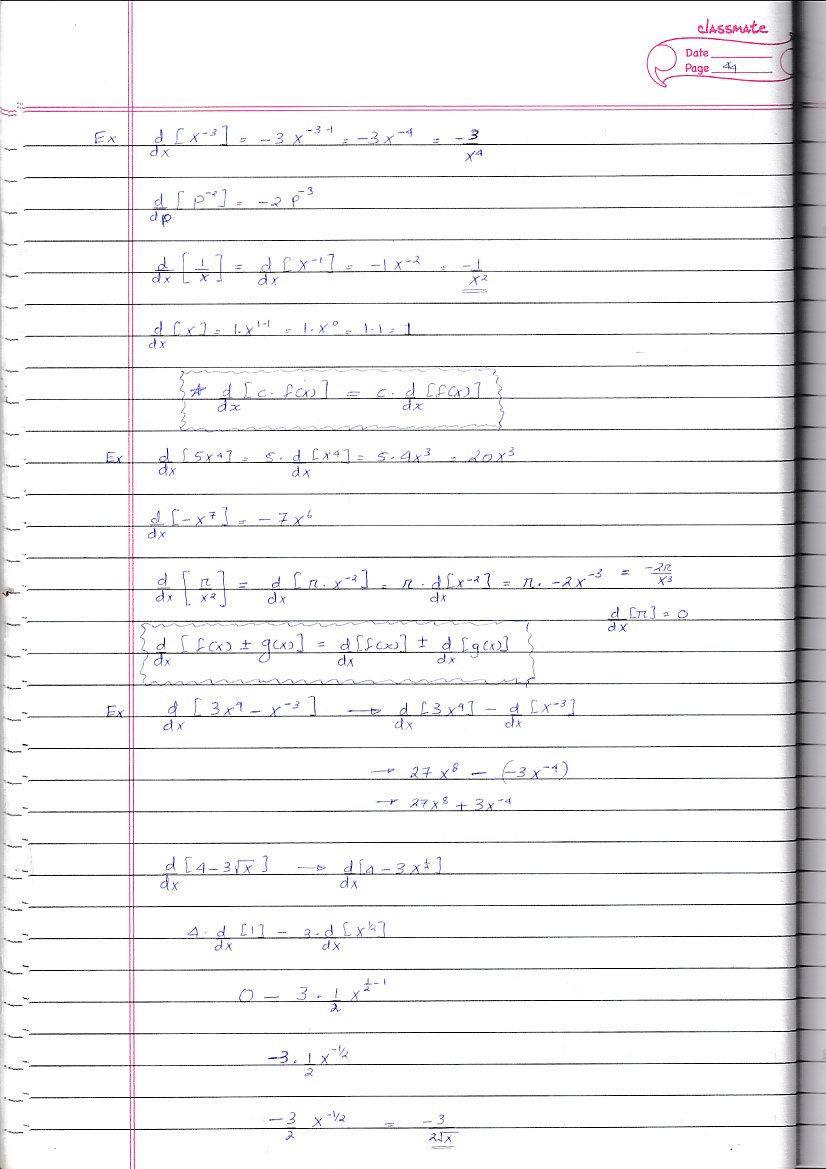 classmate
Date
Page 44
Ex d/dx [x⁻³] = -3x⁻³⁻¹ = -3x⁻⁴ = -3/x⁴
d/dp [p⁻²] = -2p⁻³
d/dx [1/x] = d/dx [x⁻¹] = -1x⁻² = -1/x²
d/dx [x] = 1·x¹⁻¹ = 1·x⁰ = 1·1 = 1
* d/dx [c·f(x)] = c·d/dx [f(x)]
Ex d/dx [5x⁴] = 5·d/dx [x⁴] = 5·4x³ = 20x³
d/dx [-x⁷] = -7x⁶
d/dx [π/x²] = d/dx [π·x⁻²] = π·d/dx [x⁻²] = π·-2x⁻³ = -2π/x³
d/dx [π] = 0
d/dx [f(x) ± g(x)] = d/dx [f(x)] ± d/dx [g(x)]
Ex d/dx [3x⁹ - x⁻³] → d/dx [3x⁹] - d/dx [x⁻³]
→ 27x⁸ - (-3x⁻⁴)
→ 27x⁸ + 3x⁻⁴
d/dx [4-3√x] → d/dx [4-3x^½]
4·d/dx [1] - 3·d/dx [x^½]
0 - 3·1/2 x^(½-1)
-3·1/2 x^(-1/2)
-3/2 x^(-1/2) = -3/2√x